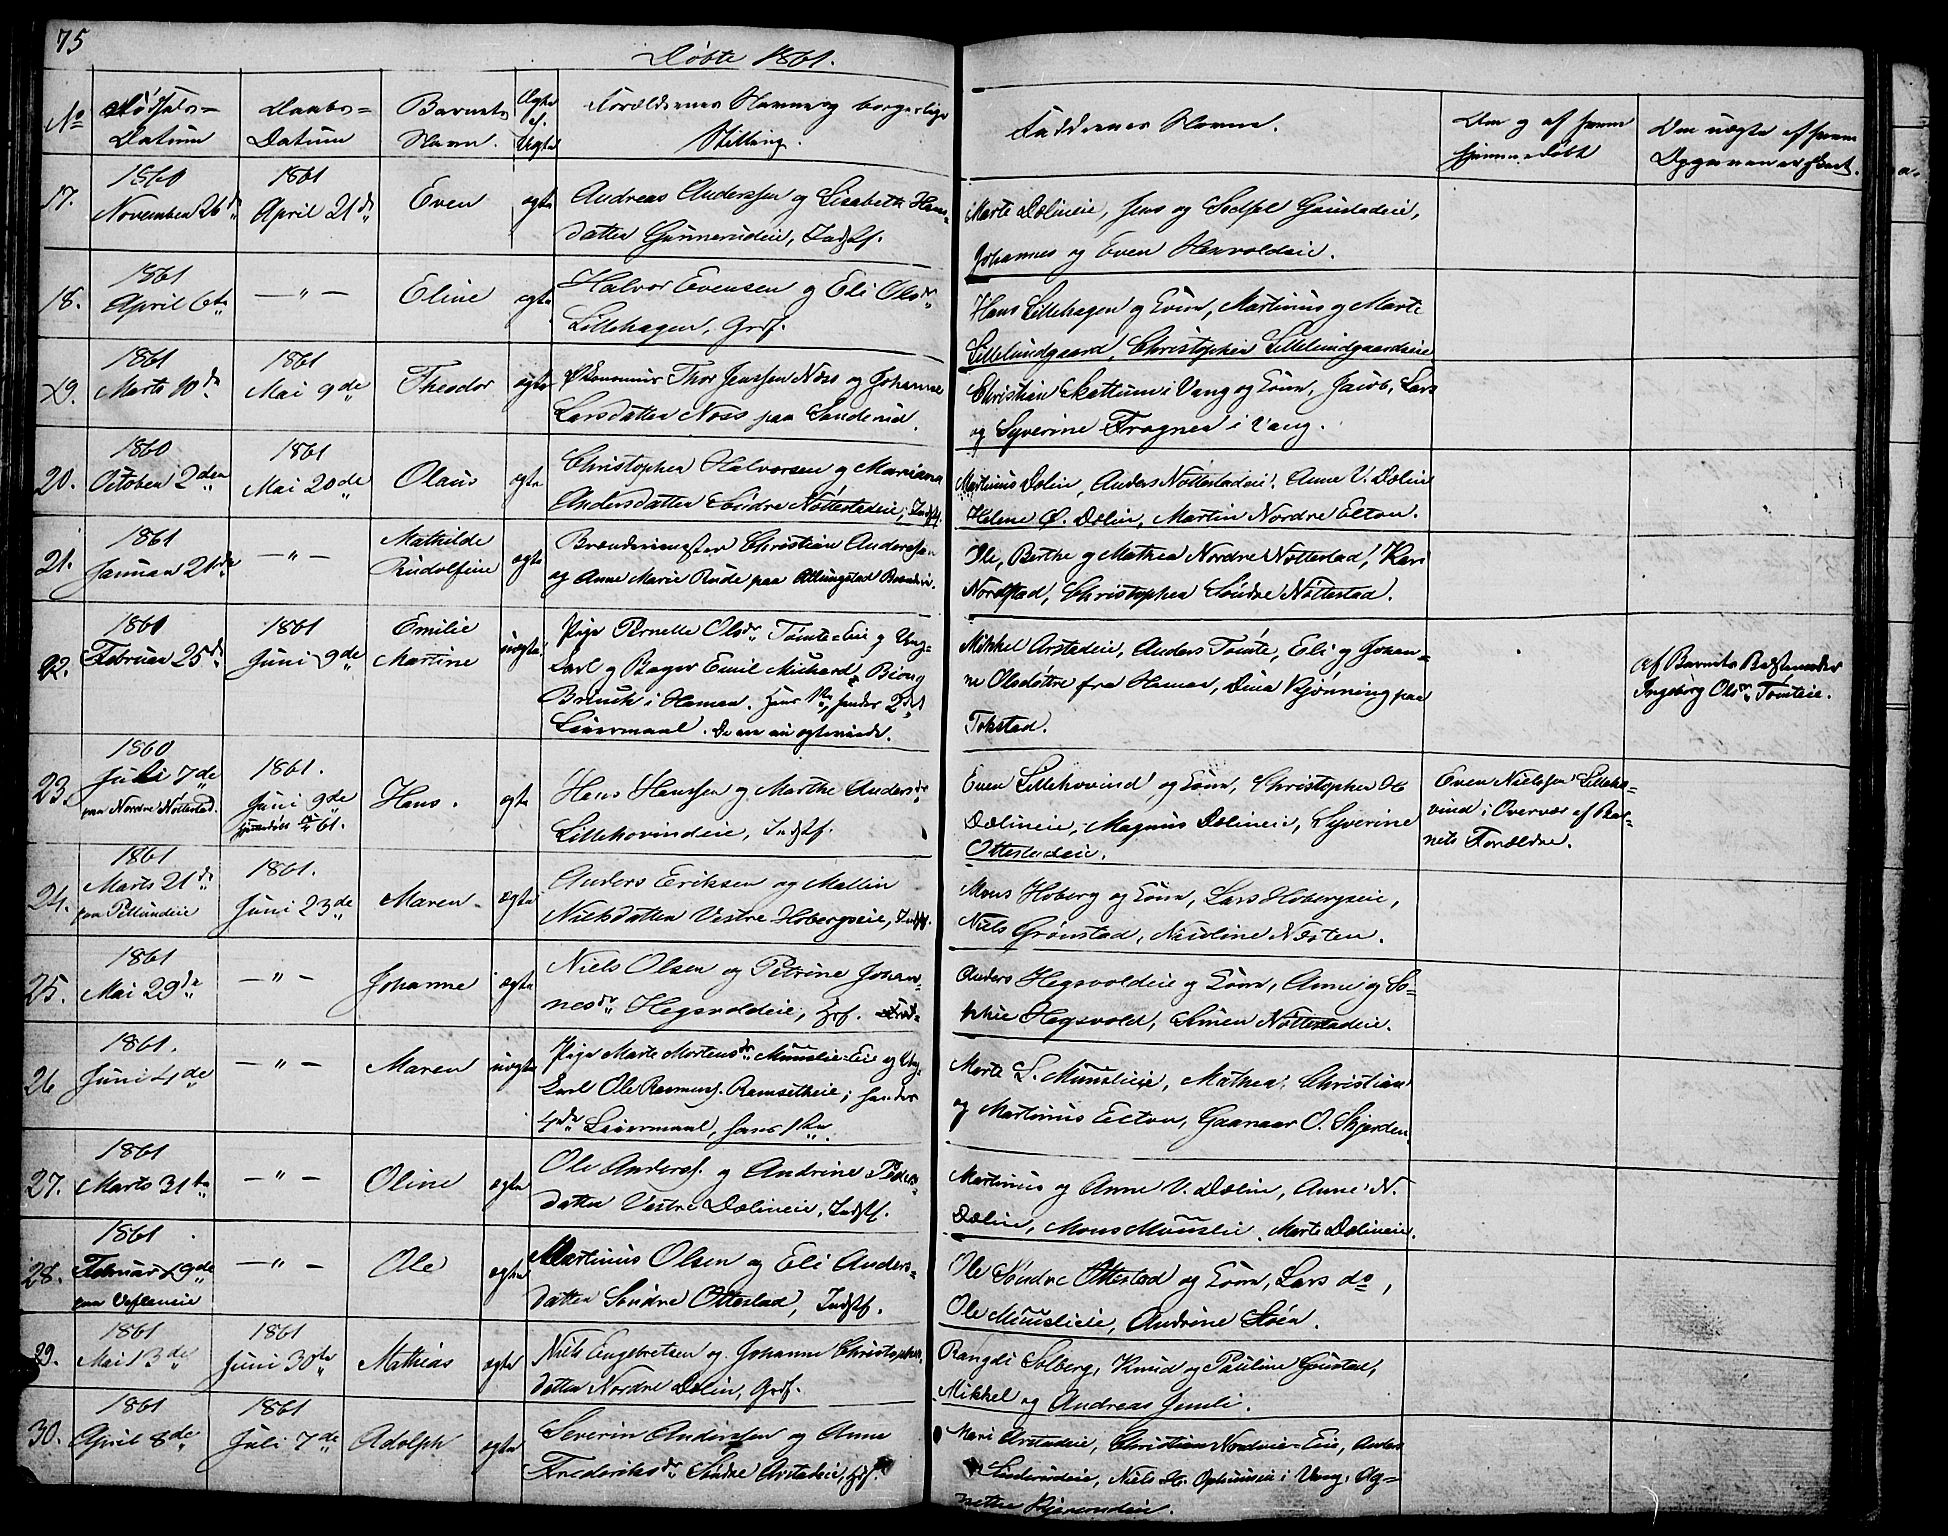 75
Døbte 1861.
No Fødsels= Datum
Daabs= Datum
Barnets Navn.
Ægte el. Uægte
Forældrenes Navne og borgerlige Stilling.
Faddernes Navne.
Om og af hvem hjemmedøbt
Om uægte af hvem Opgivelsen er skeet.
17. 1860 November 26de 1861 April 21de Even ægte
Andreas Anderssen og Lisabeth Hans-
datter Gunnerudeie, Indst.
Marte Dælineie, Jens og Sedsel Gaudadeie,
Johannes og Even Hervoldeie.
18. 1861 April 6te — " — Eline ægte
Halvor Evensen og Eli Olsdr
Lillehagen, Grdf.
Hans Lillehagen og Kone, Martinus og Marte
Lillelundgaard, Christopher Lillelundgaardseie
19. 1861 Marts 10de 1861 Mai 9de Theodor ægte
Økonomus Thor Jenssen Noss og Johanne
Larsdatter Noss paa Sanderud.
Christian Skattum i Vang og Kone, Jacob, Lars
og Syverine Frogner i Vang.
20. 1860 October 2den 1861 Mai 20de Olaus ægte
Christopher Halvorsen og Mariana
Andersdatter Søndre Nøttestadeie, Indst.
Martinus Dælin, Anders Nøttestadeie, Anne V. Dælin
Helene Ø. Dælin, Martin Nordre Elton.
21. 1861 Januar 21de — " — Mathilde Rudolfine ægte
Brænderimester Christian Anderssen
og Anne Marie Rude paa Atlungstad Brænderi.
Ole, Berthe og Mathea Nordre Nøttestad, Kari
Nordstad, Christopher Søndre Nøttestad.
22. 1861 Februar 25de 1861 Juni 9de Emilie Martine uægte
Pige Pernelle Olsdr Tomte-Eie og Ung-
karl og Bager Emil Michard Biong
Bruuk i Hamar. Hans 1te, hendes 2det
Leiermaal. De ere nu ægteviede.
Mikkel Arstadeie, Anders Tomte, Eli og Johan-
ne Olsdøttre fra Hamar, Dina Kjønning paa
Tokstad.
Af Barnets Bedstemoder
Ingeborg Olsdr Tomteie.
23. 1860 Juli 7de paa Nordre Nøttestad. 1861. Juni 9de Hans. ægte
Hans Hanssen og Marthe Andersdr
Lillehovindeie, Indst.
Even Lillehovind og Kone, Christopher H
Dælineie, Magnus Dælineie, Syverine
Ottestadeie.
Even Nielssen Lilleho-
vind i Overvær af Bar-
nets Forældre.
24. 1861 Marts 21de 1861. Juni 23de Maren ægte
Anders Eriksen og Mallin
Nielsdatter Vestre Hobergseie, Indst.
Mons Hoberg og Kone, Lars Hobergseie,
Niels Grønstad, Nicoline Næsten.
25. 1861 Mai 29de — " — Johanne ægte
Niels Olsen og Petrine Johan-
nesdr Hegsvoldeie,
Anders Hegsvoldeie og Kone, Anne og So-
phie Hegsvold, Simen Nøttestadeie.
26 1861. Juni 4de — " — Maren uægte
Pige Marte Mortensdr Munslie-Eie og Ung-
karl Ole Rasmuss. Ramsetheie; hendes
4de Leiermaal, hans 1te.
Marte L. Munslieie, Mathea, Christian
og Martinus Elton, Gunnar O. Skjerden.
27. 1861 Marts 31te — " — Oline ægte
Ole Anderss. og Andrine Peders-
datter Vestre Dælineie, Indst.
Martinus og Anne V. Dælin, Anne N.
Dælin, Mons Munslie, Marte Dælineie.
28. 1861 Februar 19de — " — Ole ægte
Martinus Olsen og Eli Anders-
datter Søndre Ottestad, Indst.
Ole Søndre Ottestad og Kone, Lars do,
Ole Munslieie, Andrine Støen.
29. 1861 Mai 13de 1861 Juni 30te Mathias ægte
Niels Engebretsen og Johanne Christopher-
datter Nordre Dælin, Grdf.
Rangdi Solberg, Knud og Pauline Goustad,
Mikkel og Andreas Jemli.
30. 1861 April 8de 1861 Juli 7de Adolph ægte
Severin Anderssen og Anne
Frederiksdr Søndre Arstadeie,
Mari Arstadeie, Christian Nordvie-Eie, Anders
Sanderudeie, Niels H. Ophuuseie i Vang, Ag-
nethe